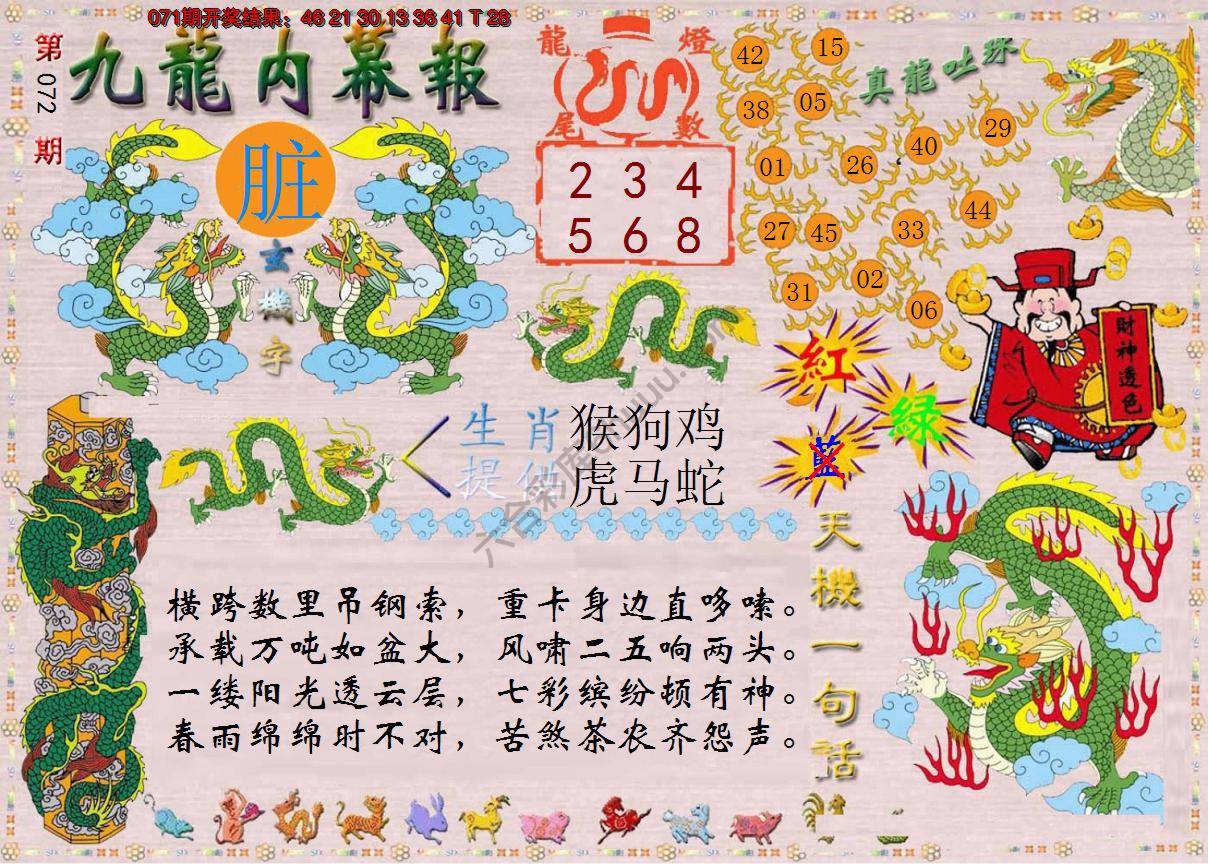 071期开奖结果：46 21 30 13 36 41 T 28
第072期
九龍内幕報
脏
玄機字
龍燈
尾數
2 3 4
5 6 8
真龍吐珠
42 15
38 05
01 26 40 29
27 45 33 44
31 02 06
財神透色
紅
綠
藍
生肖 猴狗鸡
提供 虎马蛇
横跨数里吊钢索，重卡身边直哆嗦。
承载万吨如盆大，风啸二五响两头。
一缕阳光透云层，七彩缤纷顿有神。
春雨绵绵时不对，苦煞茶农齐怨声。
天機一句話